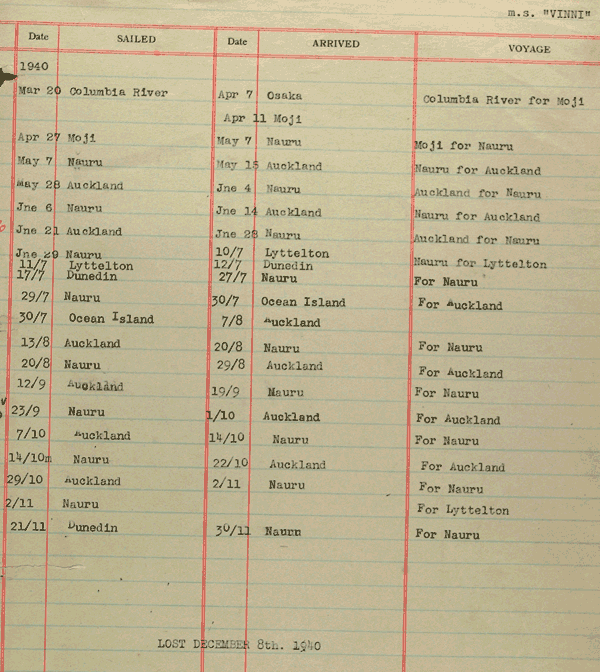 m.s. "VINNI"
Date SAILED Date ARRIVED VOYAGE
1940
Mar 20 Columbia River Apr 7 Osaka Columbia River for Moji
Apr 11 Moji
Apr 27 Moji May 7 Nauru Moji for Nauru
May 7 Nauru May 15 Auckland Nauru for Auckland
May 28 Auckland Jne 4 Nauru Auckland for Nauru
Jne 6 Nauru Jne 14 Auckland Nauru for Auckland
Jne 21 Auckland Jne 28 Nauru Auckland for Nauru
Jne 29 Nauru 10/7 Lyttelton Nauru for Lyttelton
11/7 Lyttelton 12/7 Dunedin
17/7 Dunedin 27/7 Nauru For Nauru
29/7 Nauru 30/7 Ocean Island For Auckland
30/7 Ocean Island 7/8 Auckland
13/8 Auckland 20/8 Nauru For Nauru
20/8 Nauru 29/8 Auckland For Auckland
12/9 Auckland 19/9 Nauru For Nauru
23/9 Nauru 1/10 Auckland For Auckland
7/10 Auckland 14/10 Nauru For Nauru
14/10m Nauru 22/10 Auckland For Auckland
29/10 Auckland 2/11 Nauru For Nauru
2/11 Nauru For Lyttelton
21/11 Dunedin 30/11 Nauru For Nauru
LOST DECEMBER 8th. 1940